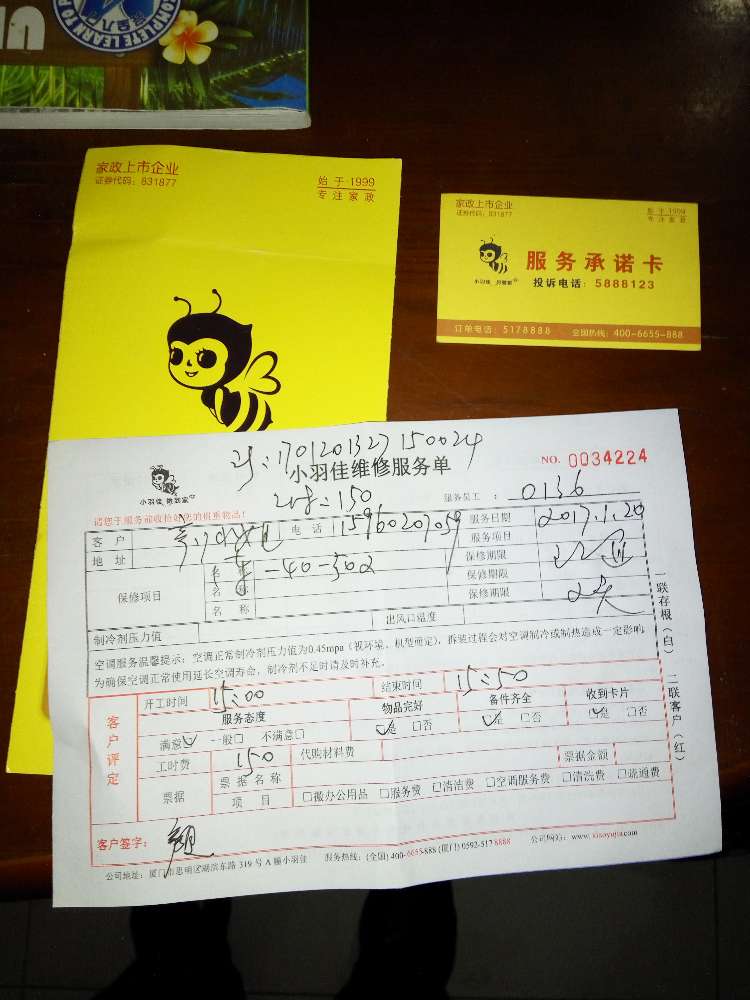 COMPLETE LEARN TO
家政上市企业
证券代码：831877
始于·1999
专注家政
家政上市企业
证券代码：831877
始于·1999
专注家政
服务承诺卡
投诉电话：5888123
订单电话：5178888
全国热线：400-6655-888
1701201327150024
小羽佳维修服务单
NO. 0034224
小羽佳
150
服务员工：0136
请您于服务前收拾好您的贵重物品！
客户
电话 15960207059
服务日期 2017.1.20
地址
-40-302
服务项目
保修项目
名称
名称
名称
保修期限
保修期限
保修期限
制冷剂压力值
出风口温度
空调服务温馨提示：空调正常制冷剂压力值为0.45mpa（视环境、机型而定），拆装过程会对空调制冷或制热造成一定影响
为确保空调正常使用延长空调寿命，制冷剂不足时请及时补充。
一联存根（白） 二联客户（红）
客户评定
开工时间 15:00
结束时间 15:50
服务态度
物品完好
备件齐全
收到卡片
满意☑ 一般□ 不满意□
☑是 □否
☑是 □否
☑是 □否
工时费 150
代购材料费
票据金额
票据
票据名称
项目
□搬办公用品 □服务费 □清洁费 □空调服务费 □清洗费 □疏通费
客户签字：
公司地址：厦门市思明区湖滨东路319号A幢小羽佳
服务热线：(全国) 400-6655-888 (厦门) 0592-5178888
公司网站：www.xiaoyujia.com